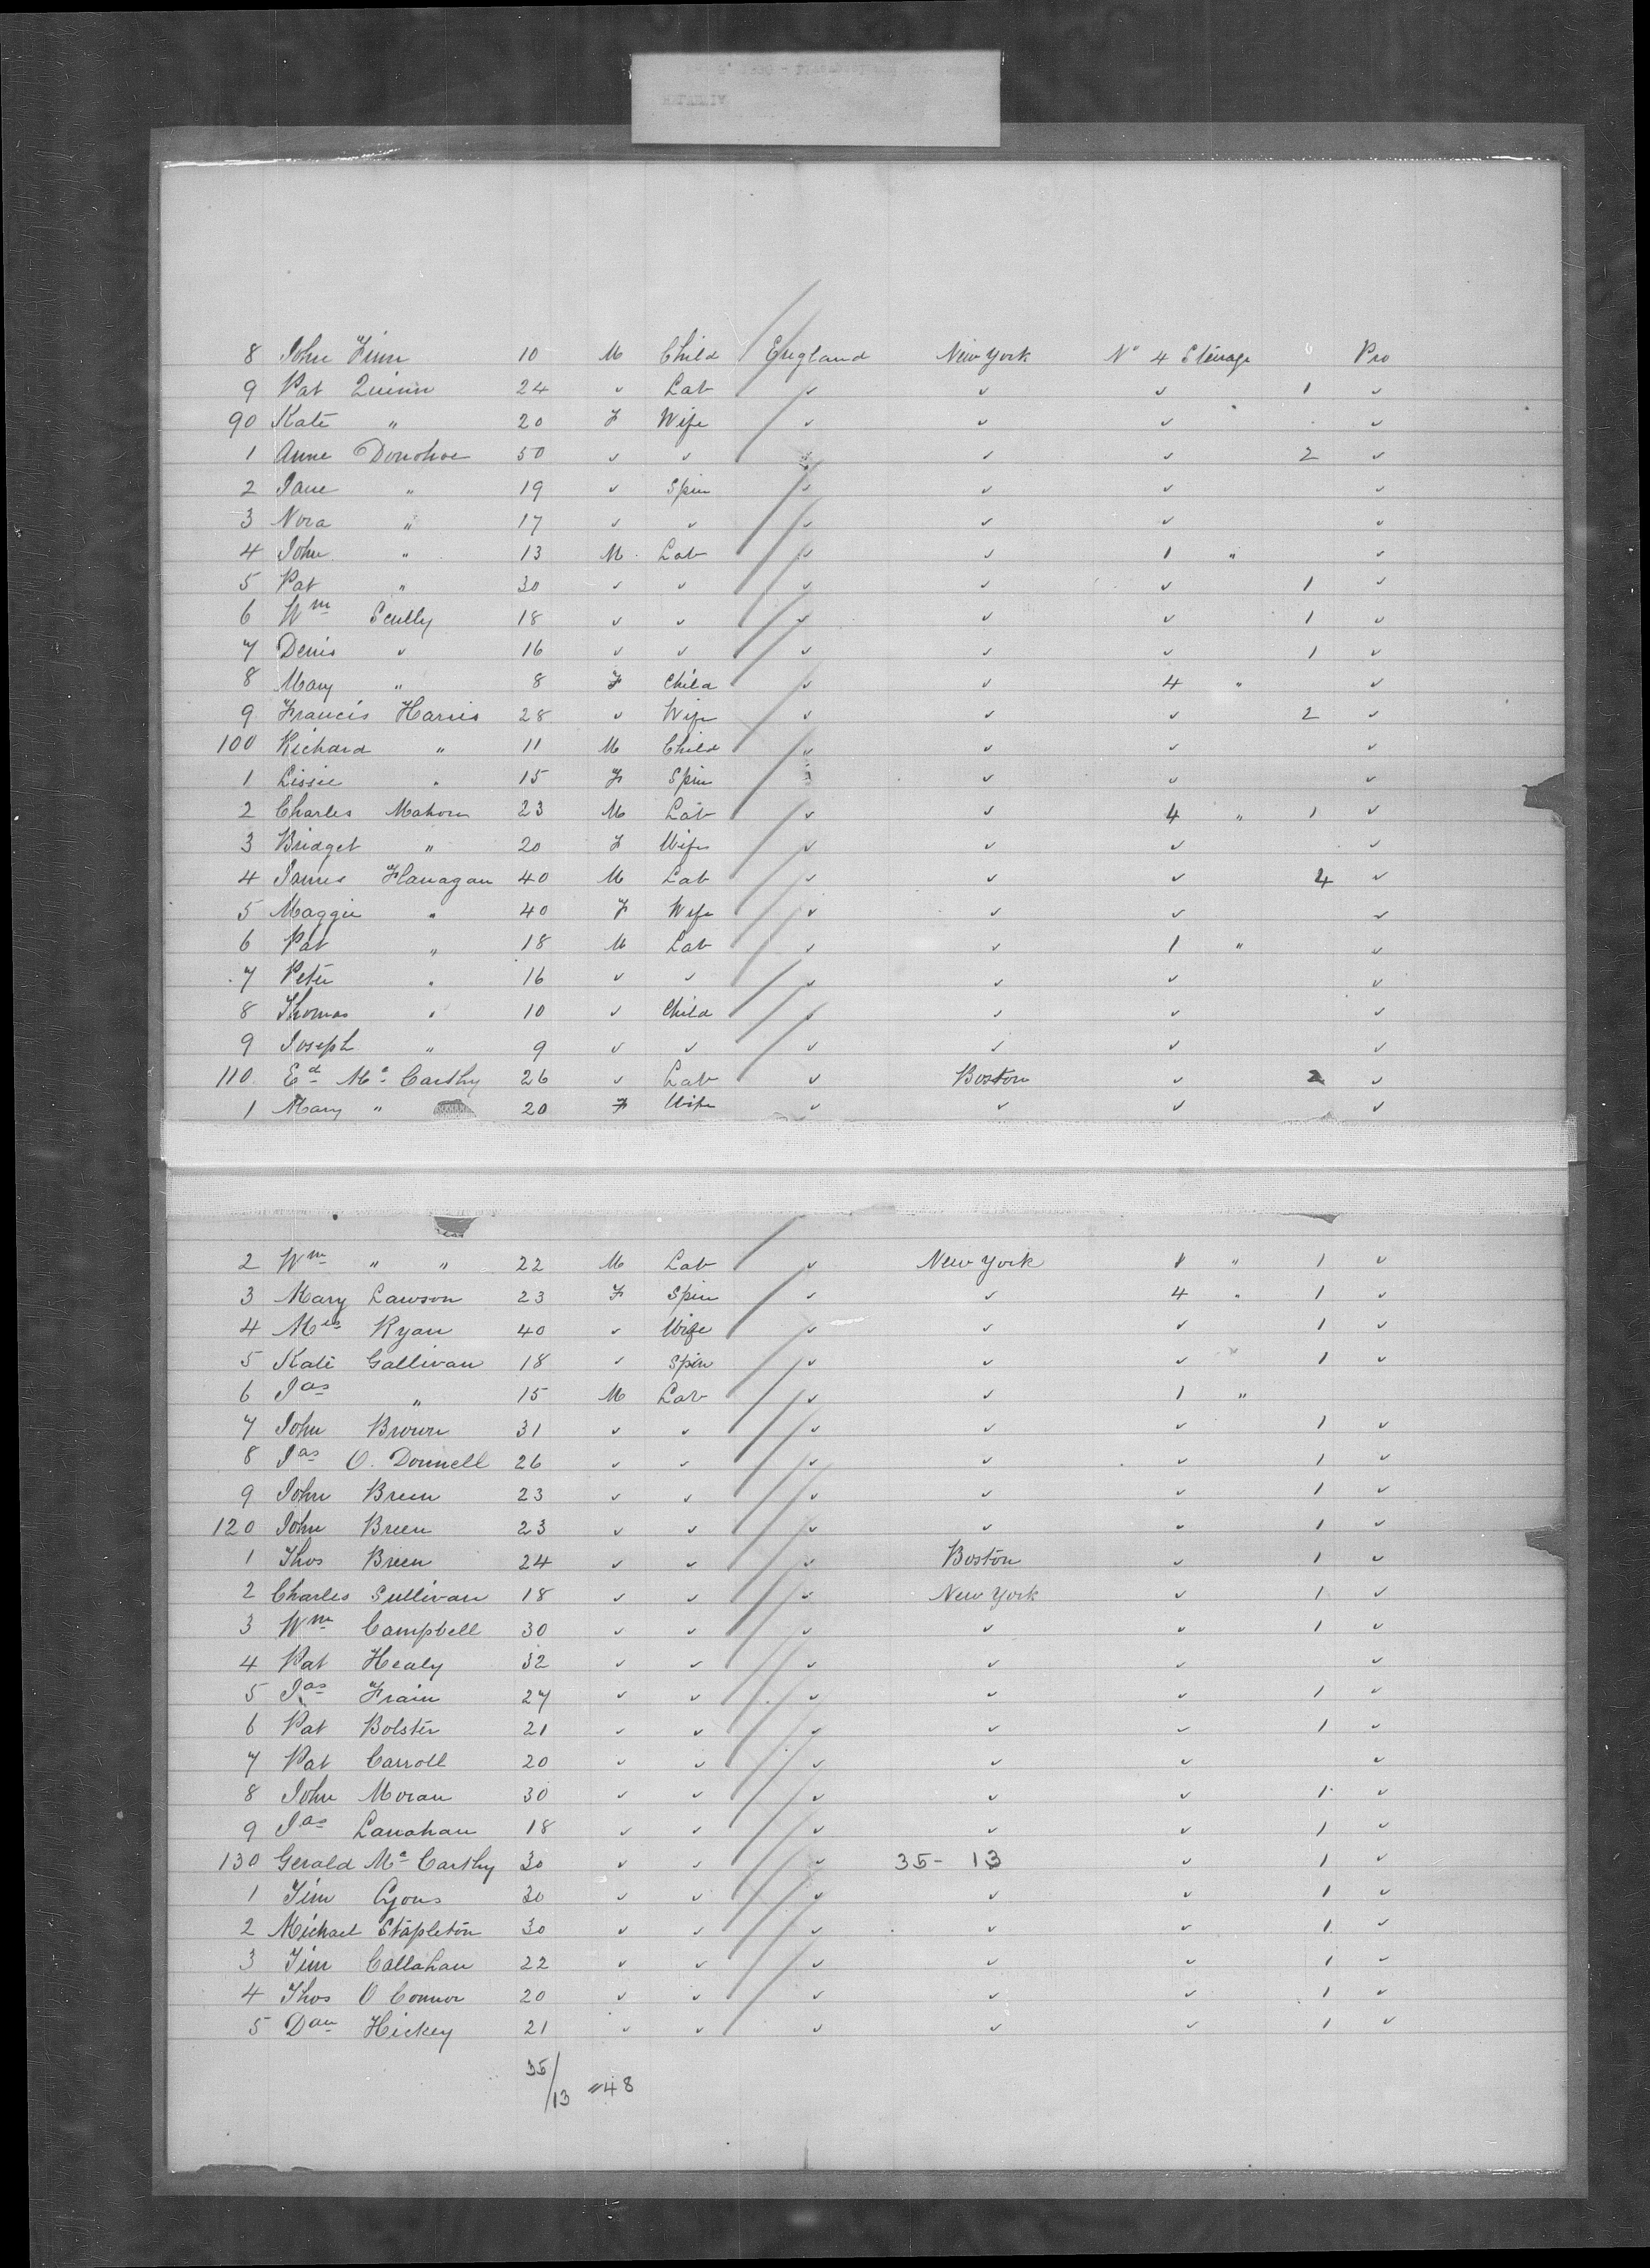 8 John Finn 10 M Child England New York No 4 Steerage Pro
9 Pat Quinn 24 ✓ Lab ✓ ✓ ✓ 1 ✓
90 Kate " 20 F Wife ✓ ✓ ✓ ✓
1 Anne Donohoe 50 ✓ ✓ ✓ ✓ ✓ 2 ✓
2 Jane " 19 ✓ Spin ✓ ✓ ✓ ✓
3 Nora " 17 ✓ ✓ ✓ ✓ ✓ ✓
4 John " 13 M Lab ✓ ✓ 1 " ✓
5 Pat " 30 ✓ ✓ ✓ ✓ ✓ 1 ✓
6 Wm Scully 18 ✓ ✓ ✓ ✓ ✓ 1 ✓
7 Denis ✓ 16 ✓ ✓ ✓ ✓ ✓ 1 ✓
8 Mary " 8 F Child ✓ ✓ 4 " ✓
9 Francis Harris 28 ✓ Wife ✓ ✓ ✓ 2 ✓
100 Richard " 11 M Child ✓ ✓ ✓ ✓
1 Lissie " 15 F Spin ✓ ✓ ✓
2 Charles Mahon 23 M Lab ✓ ✓ 4 " 1 ✓
3 Bridget " 20 F Wife ✓ ✓ ✓ ✓
4 James Flanagan 40 M Lab ✓ ✓ ✓ 4 ✓
5 Maggie " 40 F Wife ✓ ✓ ✓ ✓
6 Pat " 18 M Lab ✓ ✓ 1 " ✓
7 Peter " 16 ✓ ✓ ✓ ✓ ✓ ✓
8 Thomas " 10 ✓ Child ✓ ✓ ✓ ✓
9 Joseph " 9 ✓ ✓ ✓ ✓ ✓ ✓
110 Ed Mc Carthy 26 ✓ Lab ✓ Boston ✓ 2 ✓
1 Mary " 20 F Wife ✓ ✓ ✓ ✓
2 Wm " " 22 M Lab ✓ New York 1 " 1 ✓
3 Mary Lawson 23 F Spin ✓ ✓ 4 " 1 ✓
4 Mrs Ryan 40 ✓ Wife ✓ ✓ ✓ 1 ✓
5 Kate Gallivan 18 ✓ Spin ✓ ✓ ✓ 1 ✓
6 Jas " 15 M Lab ✓ ✓ 1 "
7 John Brown 31 ✓ ✓ ✓ ✓ ✓ 1 ✓
8 Jas O. Donnell 26 ✓ ✓ ✓ ✓ ✓ 1 ✓
9 John Breen 23 ✓ ✓ ✓ ✓ ✓ 1 ✓
120 John Breen 23 ✓ ✓ ✓ ✓ ✓ 1 ✓
1 Thos Breen 24 ✓ ✓ ✓ Boston ✓ 1 ✓
2 Charles Sullivan 18 ✓ ✓ ✓ New York ✓ 1 ✓
3 Wm Campbell 30 ✓ ✓ ✓ ✓ ✓ 1 ✓
4 Pat Healy 32 ✓ ✓ ✓ ✓ ✓ ✓
5 Jas Frain 27 ✓ ✓ ✓ ✓ ✓ 1 ✓
6 Pat Bolster 21 ✓ ✓ ✓ ✓ ✓ 1 ✓
7 Pat Carroll 20 ✓ ✓ ✓ ✓ ✓ ✓
8 John Moran 30 ✓ ✓ ✓ ✓ ✓ 1 ✓
9 Jas Lanahan 18 ✓ ✓ ✓ ✓ ✓ 1 ✓
130 Gerald Mc Carthy 30 ✓ ✓ ✓ 35 - 13 ✓ 1 ✓
1 Jim Lyons 30 ✓ ✓ ✓ ✓ ✓ 1 ✓
2 Michael Stapleton 30 ✓ ✓ ✓ ✓ ✓ 1 ✓
3 Jim Callahan 22 ✓ ✓ ✓ ✓ ✓ 1 ✓
4 Thos O Connor 20 ✓ ✓ ✓ ✓ ✓ 1 ✓
5 Dan Hickey 21 ✓ ✓ ✓ ✓ ✓ 1 ✓
35/13 = 48